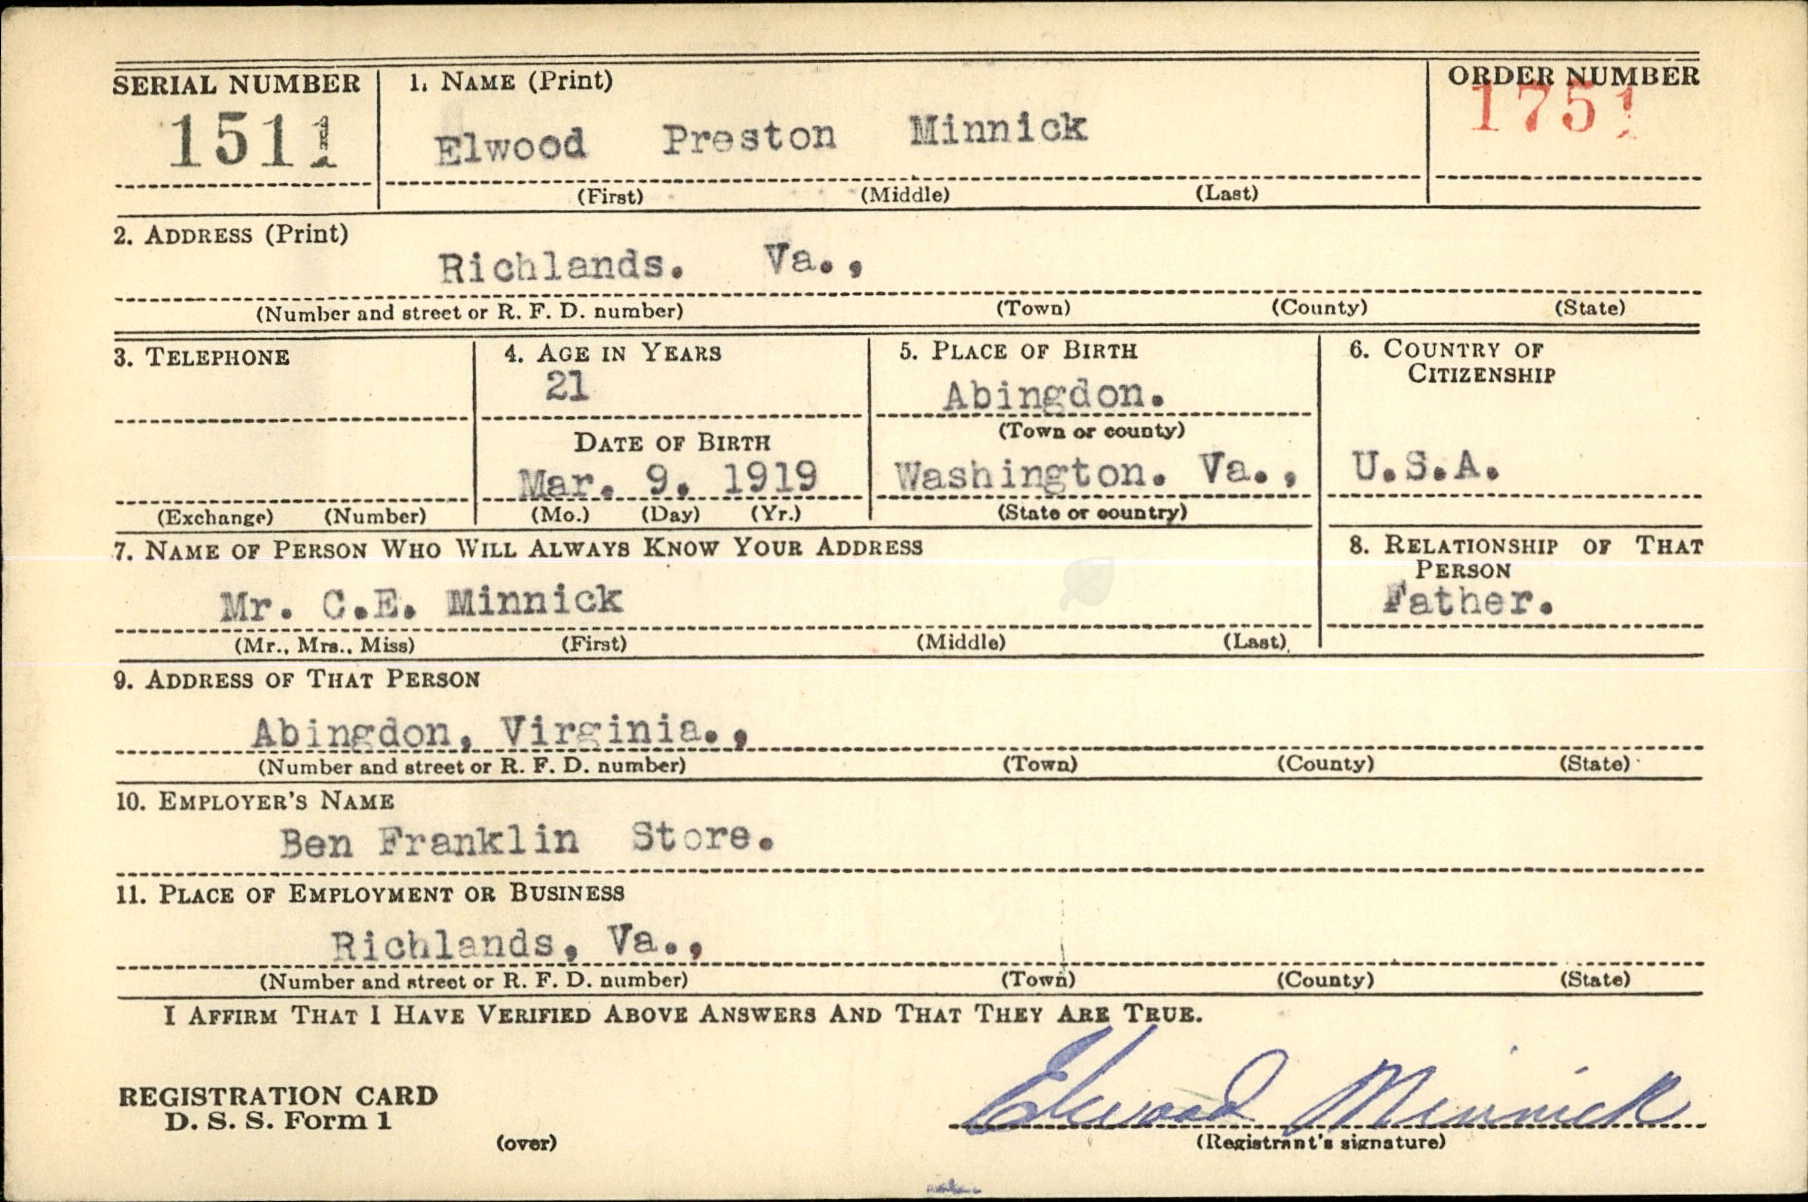 SERIAL NUMBER
1511
1. NAME (Print)
Elwood Preston Minnick
(First) (Middle) (Last)
ORDER NUMBER
1751
2. ADDRESS (Print)
Richlands. Va.,
(Number and street or R. F. D. number) (Town) (County) (State)
3. TELEPHONE
(Exchange) (Number)
4. AGE IN YEARS
21
DATE OF BIRTH
Mar. 9. 1919
(Mo.) (Day) (Yr.)
5. PLACE OF BIRTH
Abingdon.
(Town or county)
Washington. Va.,
(State or country)
6. COUNTRY OF
CITIZENSHIP
U.S.A.
7. NAME OF PERSON WHO WILL ALWAYS KNOW YOUR ADDRESS
Mr. C.E. Minnick
(Mr., Mrs., Miss) (First) (Middle) (Last)
8. RELATIONSHIP OF THAT
PERSON
Father.
9. ADDRESS OF THAT PERSON
Abingdon, Virginia.,
(Number and street or R. F. D. number) (Town) (County) (State)
10. EMPLOYER'S NAME
Ben Franklin Store.
11. PLACE OF EMPLOYMENT OR BUSINESS
Richlands, Va.,
(Number and street or R. F. D. number) (Town) (County) (State)
I AFFIRM THAT I HAVE VERIFIED ABOVE ANSWERS AND THAT THEY ARE TRUE.
REGISTRATION CARD
D. S. S. Form 1
(over)
Elwood Minnick
(Registrant's signature)